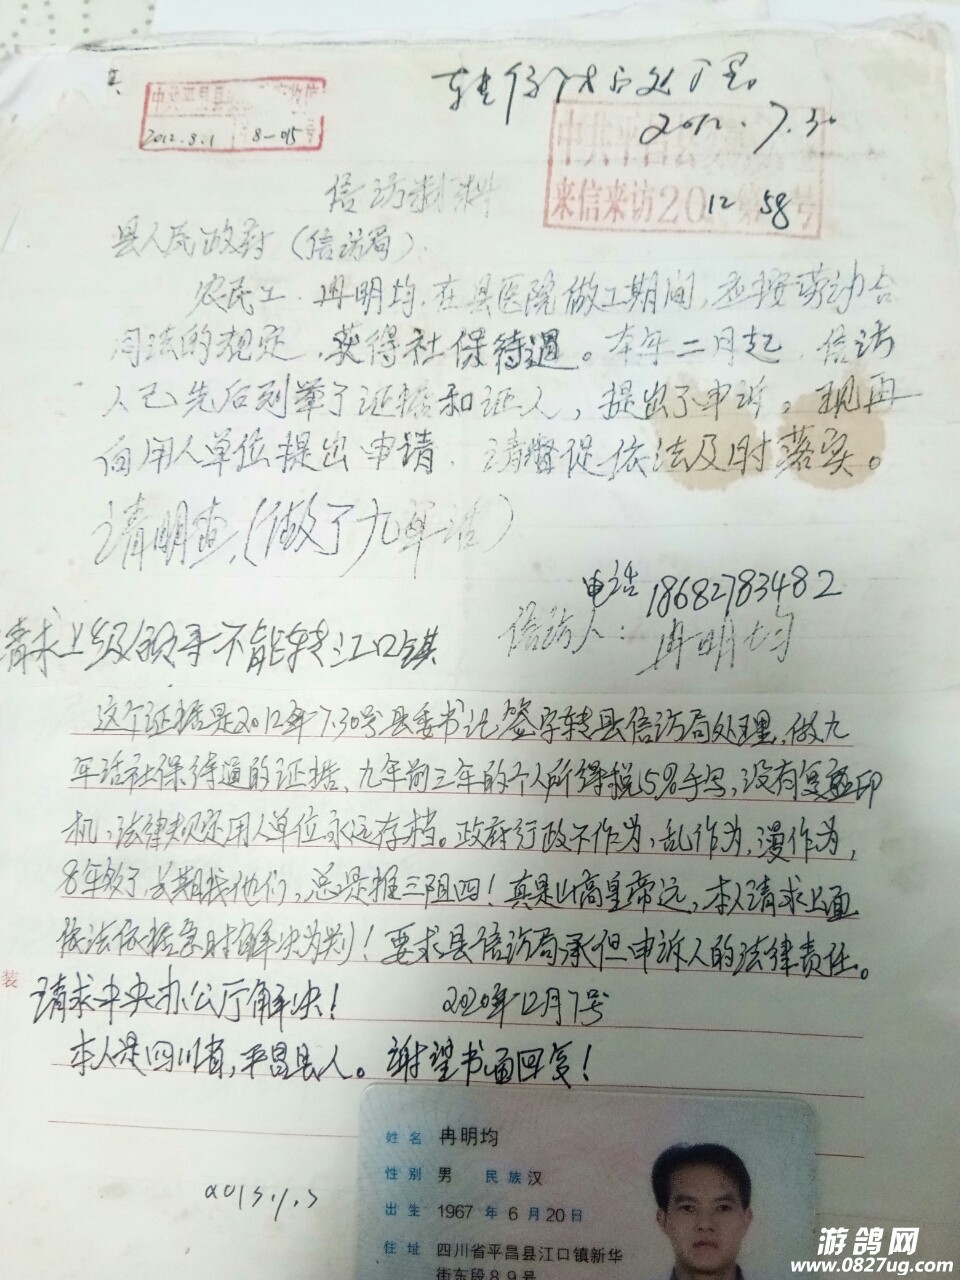 转信访局处理
2012.7.30
2012.8.1 8-015号
中共平昌县
来信来访2012第58号
信访材料
县人民政府(信访局)
农民工冉明均,在县医院做工期间,应按劳动合
同法的规定,获得社保待遇。本年二月起,信访
人已先后列举了证据和证人,提出了申诉。现再
向用人单位提出申请,请督促依法及时落实。
请明查,(做了九年活)
电话18682783482
信访人:冉明均
请求上级领导不能转江口镇
这个证据是2012年7.30号县委书记签字转县信访局处理,做九
年活社保待遇的证据,九年前三年的个人所得税5%手写,没有复印
机,法律规定用人单位永远存档。政府行政不作为,乱作为,漫作为,
8年敏了长期找他们,总是推三阻四!真是山高皇帝远,本人请求上面
依法依据急时解决为判!要求县信访局承但申诉人的法律责任。
装
请求中央办公厅解决! 2020年12月7号
本人是四川省,平昌县人。谢望书面回复!
2013.1.3
姓名 冉明均
性别 男 民族 汉
出生 1967年6月20日
住址 四川省平昌县江口镇新华
街东段89号
游鸽网
www.0827ug.com